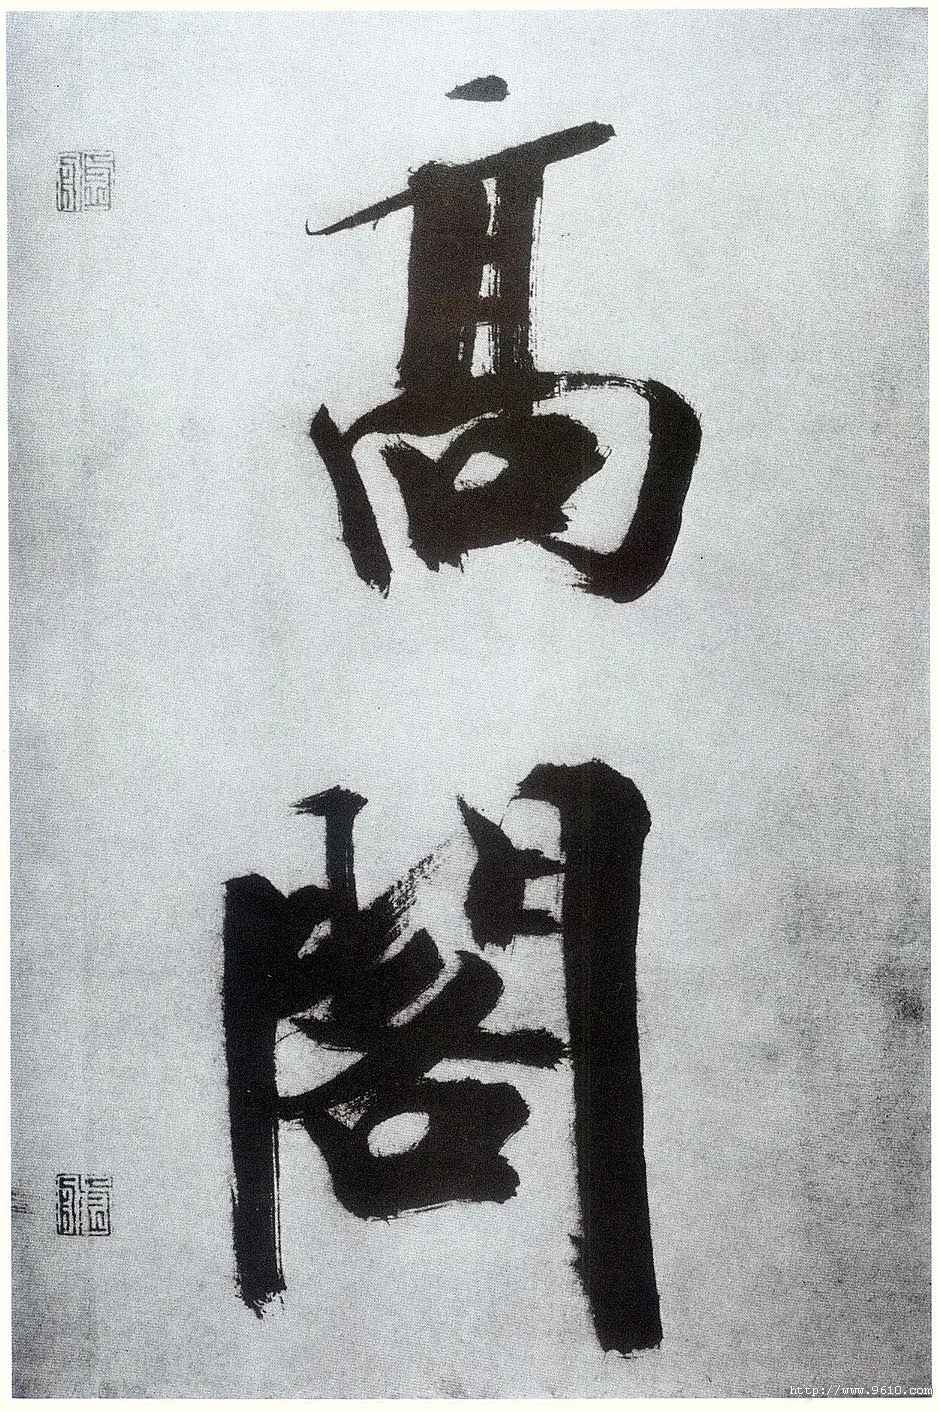 髙
閣
http://www.9610.com